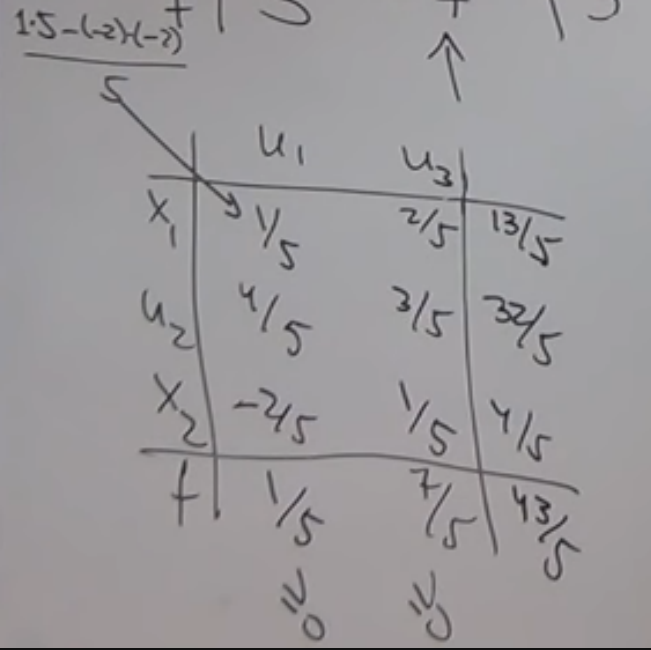 1·5-(-2)·(-2)
5
u₁ u₃
x₁ 1/5 2/5 13/5
u₂ 4/5 3/5 32/5
x₂ -2/5 1/5 4/5
f 1/5 7/5 43/5
≥0 ≥0